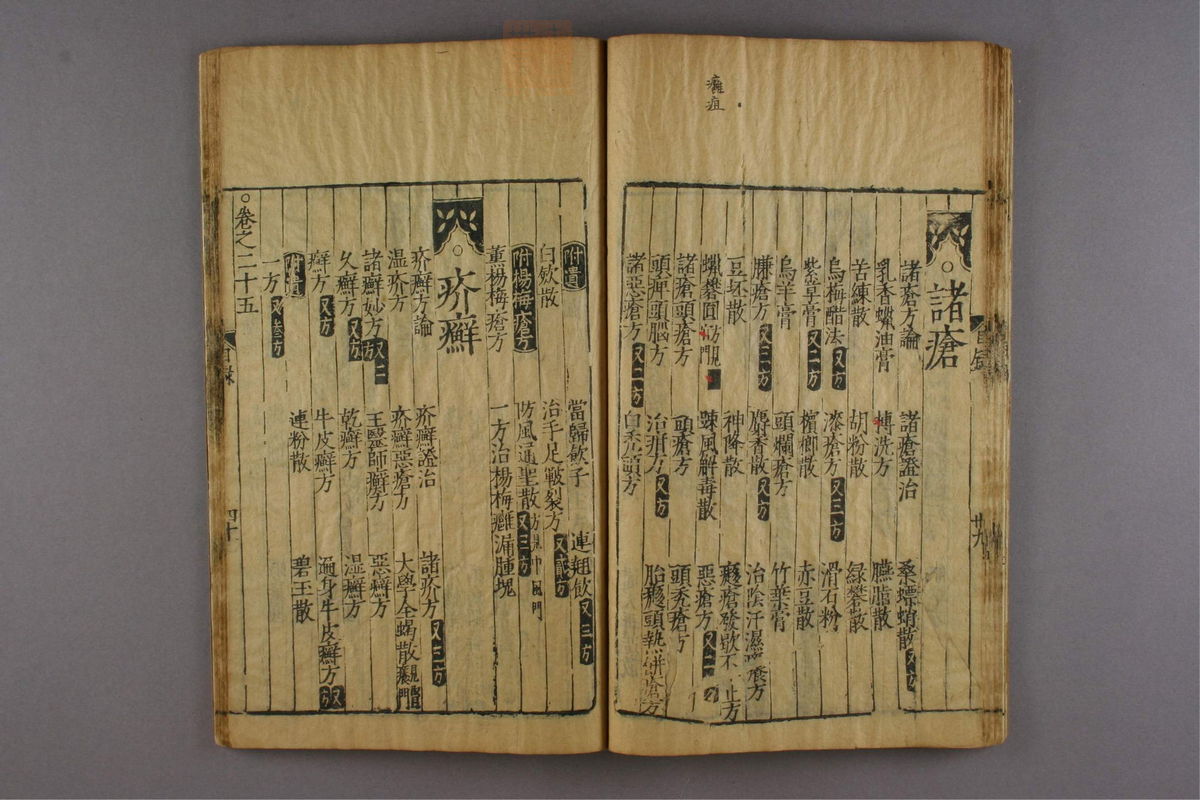 癰疽
諸瘡
諸瘡方論 諸瘡證治 桑螵蛸散 又方
乳香蠟油膏 博洗方 臙脂散
苦練散 胡粉散 緑礬散
烏梅醋法 又方 漆瘡方 又三方 滑石粉
紫草膏 又二方 檳榔散 赤豆散
烏羊膏 頭爛瘡方 竹葉膏
臁瘡方 又三方 麝香散 又方 治陰汗濕痒瘡方
豆坯散 神降散 癮瘡發歇不止方
蠟礬圓 疎風解毒散 惡瘡方
諸瘡頭瘡方 頭瘡方 頭禿瘡方
頭痺頭腦方 治頭方 又方 胎癮頭熱餅瘡方
諸惡瘡方 又二方 白禿頭方
附遺
當歸飲子 連翹飲 又三方
白歛散 治手足皸裂方 又貳方
附楊梅瘡方 防風通聖散 方見中風門 又三方
董楊梅瘡方 一方治楊梅癰漏腫塊
疥癬
疥癬方論 疥癬證治 諸疥方 又三方
温疥方 疥癬惡瘡方 大學全蝎散
諸癬妙方 又二方 王醫師癬方 惡癬方
久癬方 又方 乾癬方 濕癬方
癬方 又方 牛皮癬方 遍身牛皮癬方 又
附遺 連粉散 碧玉散
一方 又叁方
卷之二十五
目録 四十
目録 廿九